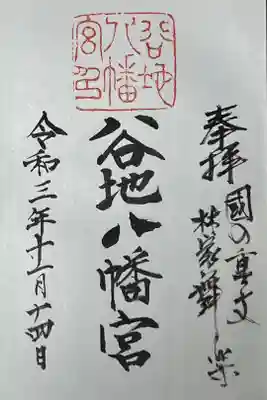 奉拝
國の重文
林家舞楽
谷地八幡宮
谷地八幡宮印
令和三年十一月十四日